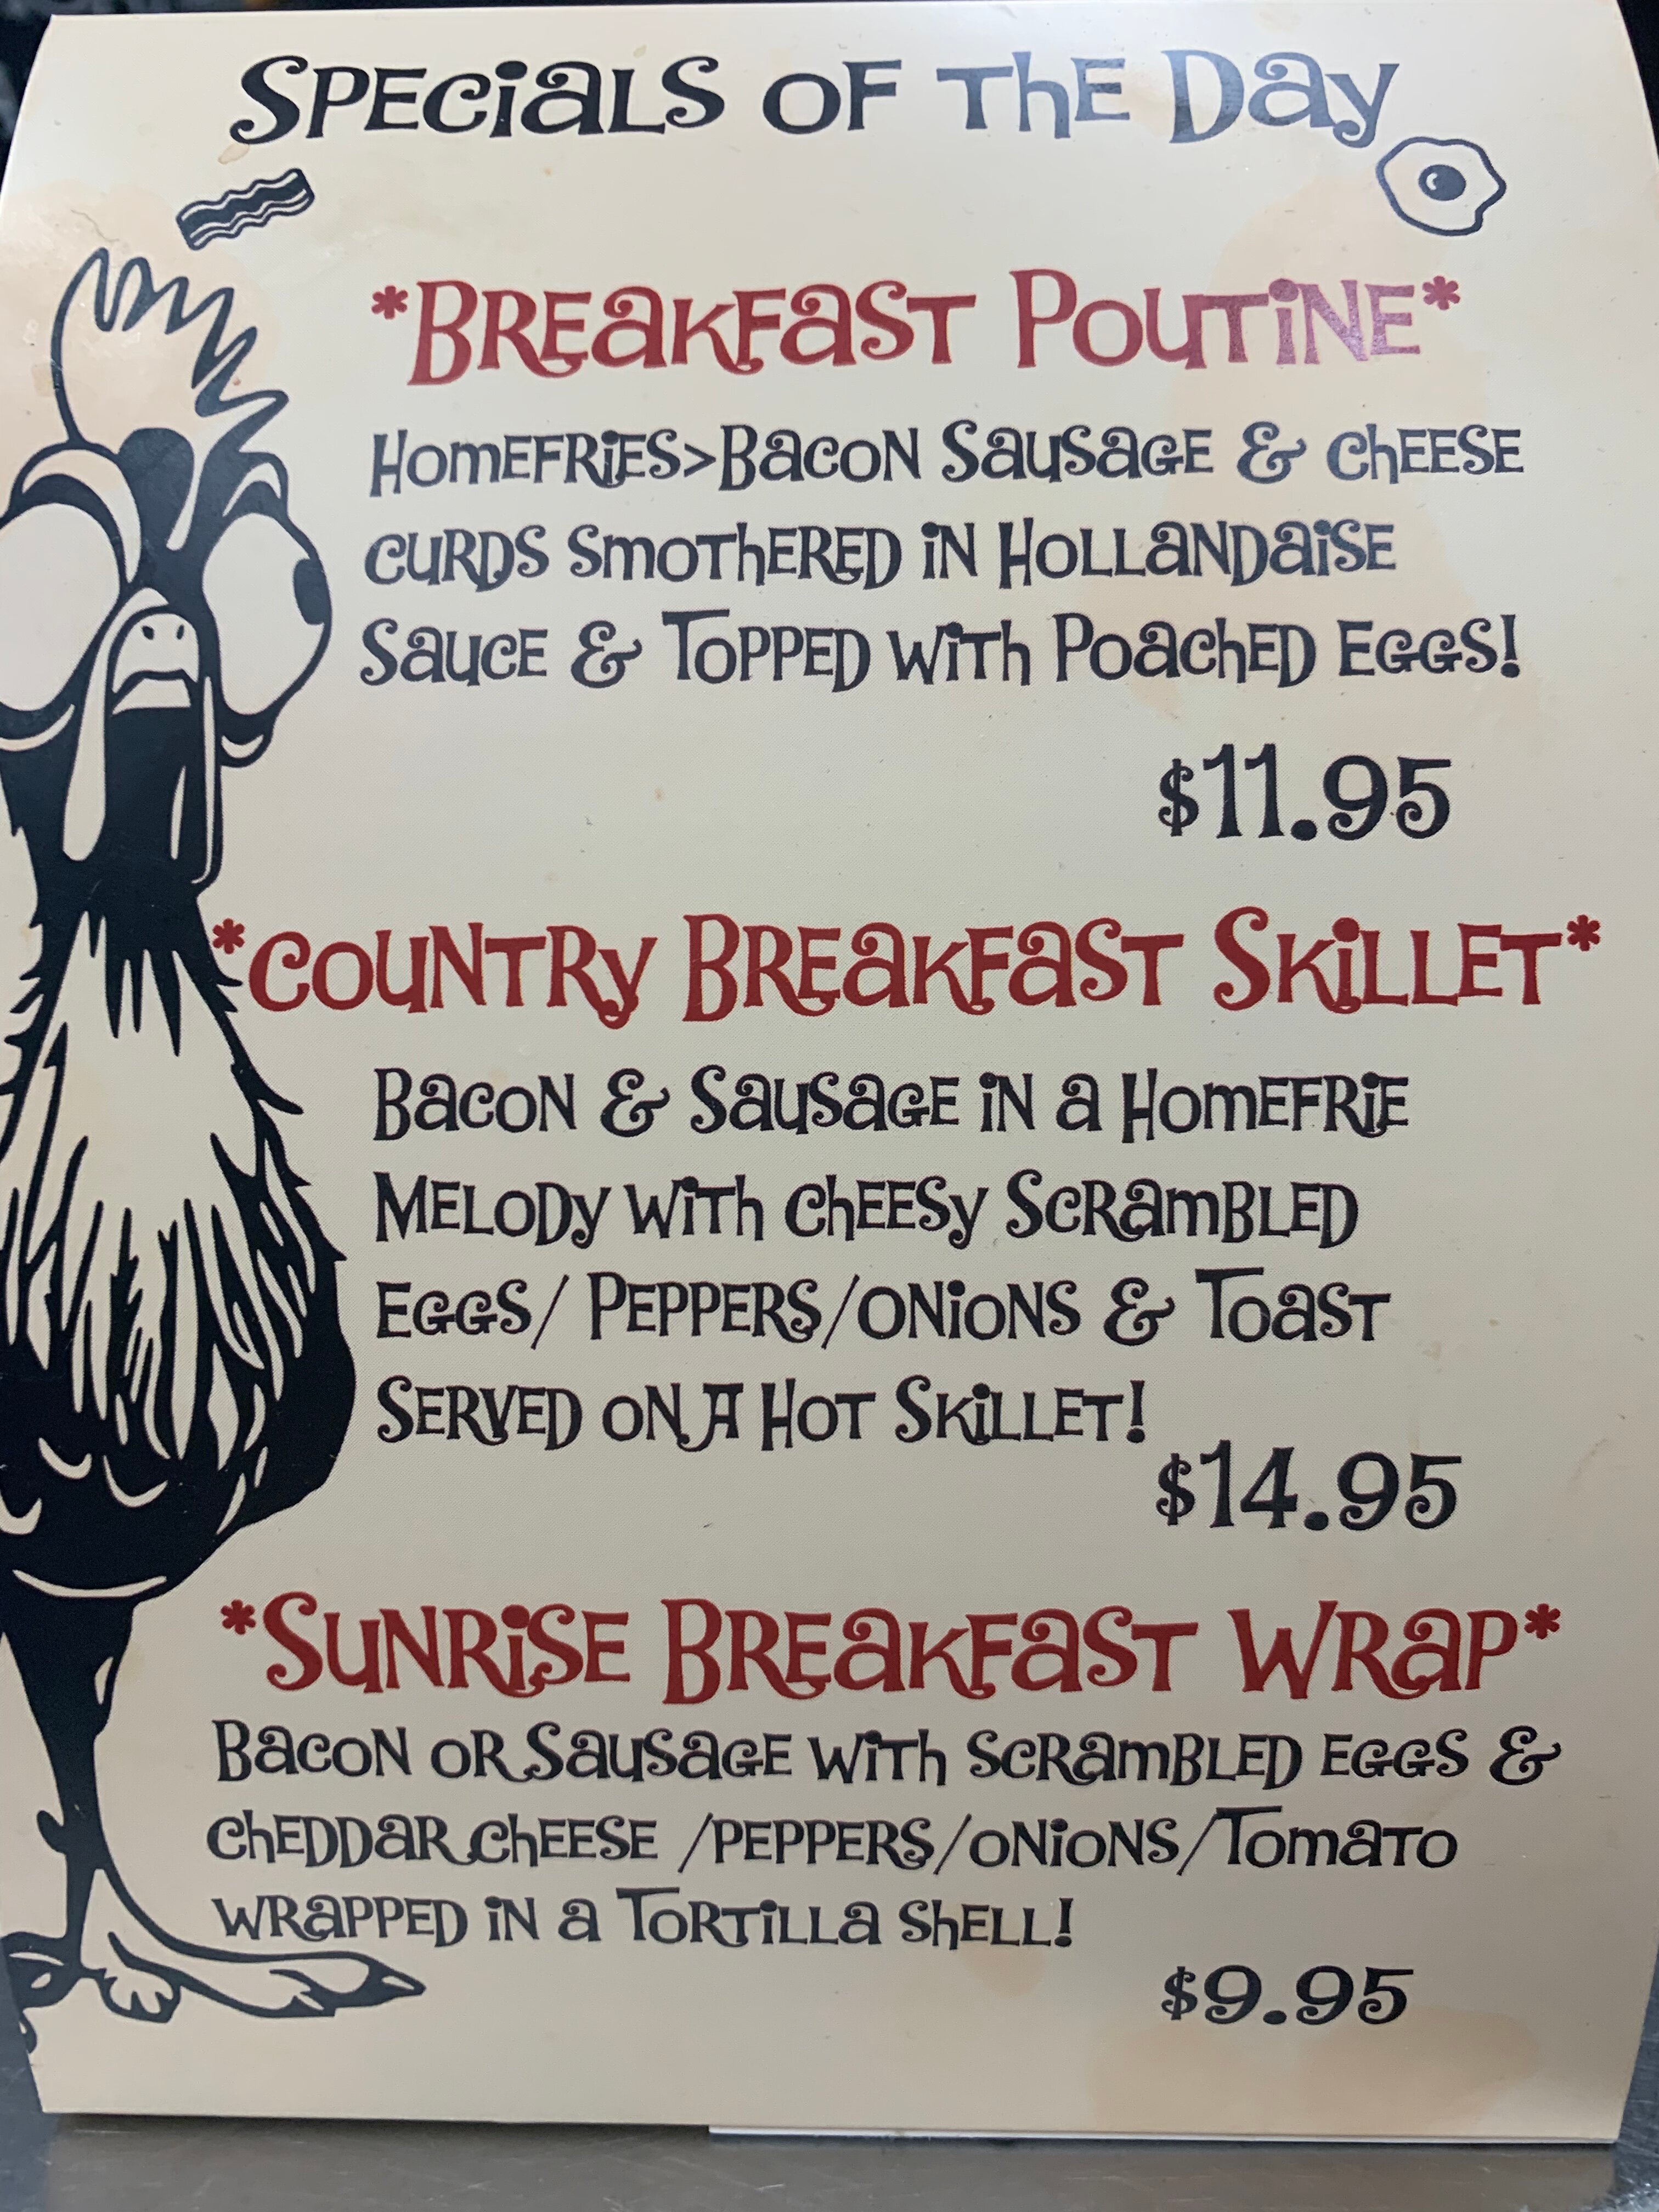 Specials of the Day
*Breakfast Poutine*
Homefries>Bacon Sausage & cheese
curds smothered in Hollandaise
Sauce & Topped with Poached Eggs!
$11.95
*Country Breakfast Skillet*
Bacon & Sausage in a Homefrie
Melody with cheesy Scrambled
Eggs/ Peppers/onions & Toast
Served on A Hot Skillet!
$14.95
*Sunrise Breakfast Wrap*
Bacon or Sausage with scrambled Eggs &
cheddar cheese /peppers/onions/Tomato
wrapped in a Tortilla shell!
$9.95